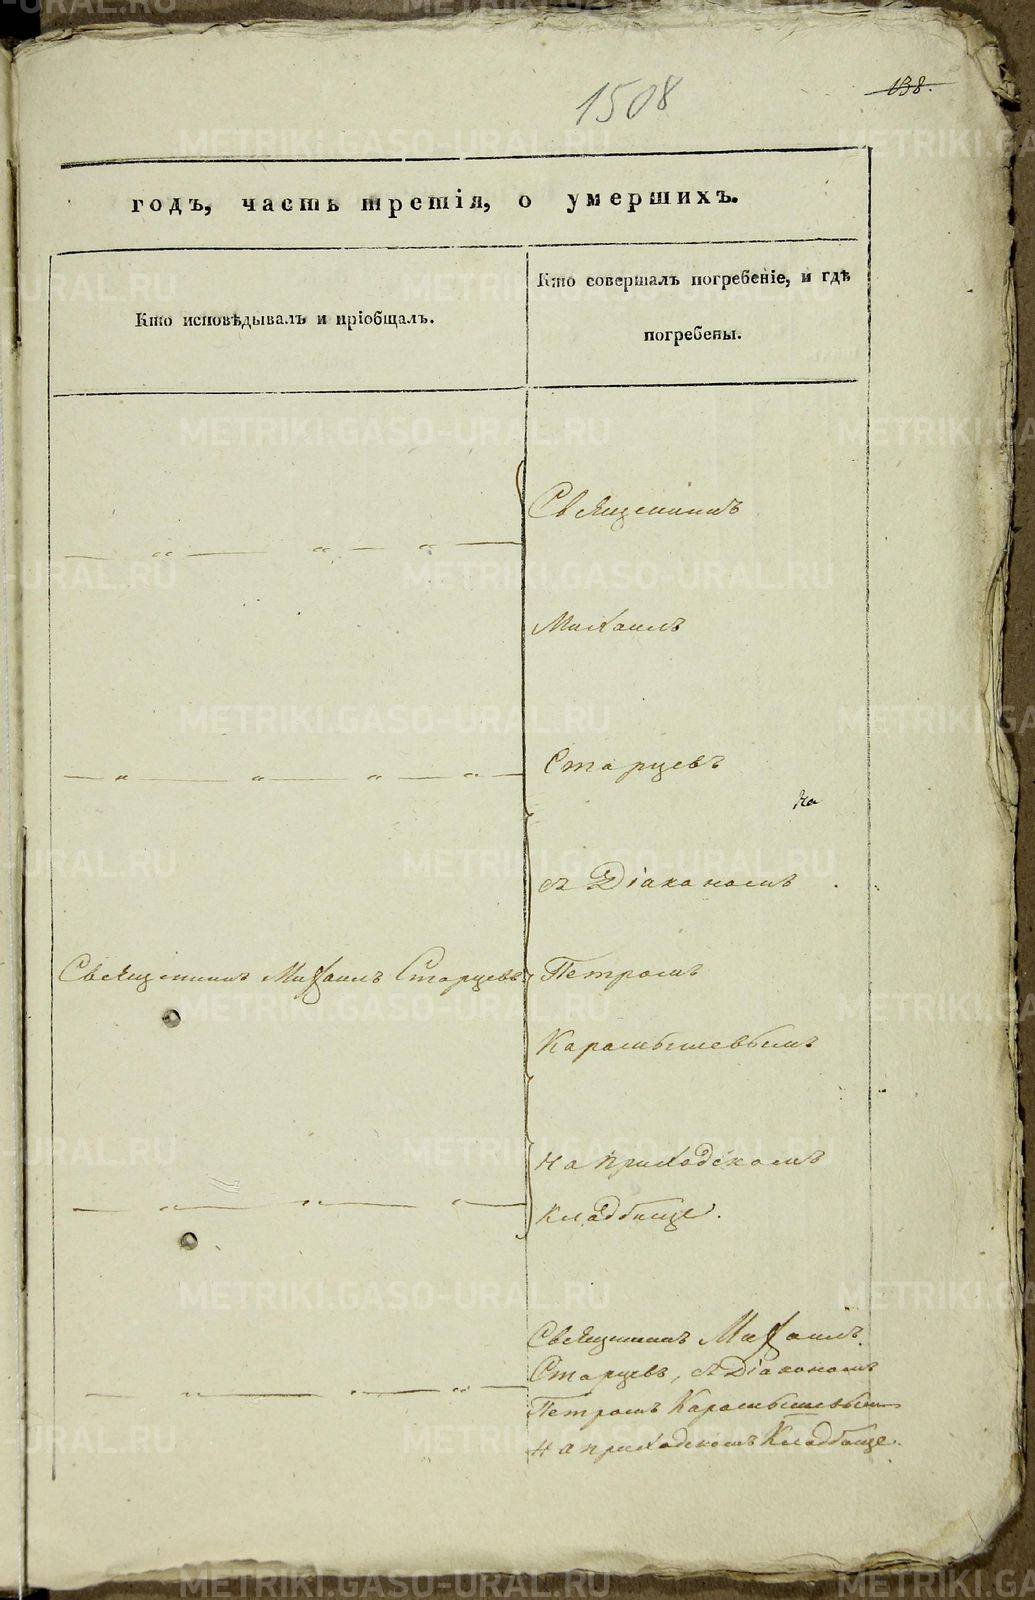 1508
138.
годъ, часть третія, о умершихъ.
Кто исповѣдывалъ и пріобщалъ.
Кто совершалъ погребеніе, и гдѣ
погребены.
Священникъ
Михаилъ
Старцевъ
на
съ Діакономъ
Священникъ Михаилъ Старцевъ
Петромъ
Карамышевымъ
на приходскомъ
кладбище.
Священникъ Михаилъ
Старцевъ, съ Діакономъ
Петромъ Карамышевымъ
на приходскомъ Кладбище.
METRIKI.GASO-URAL.RU